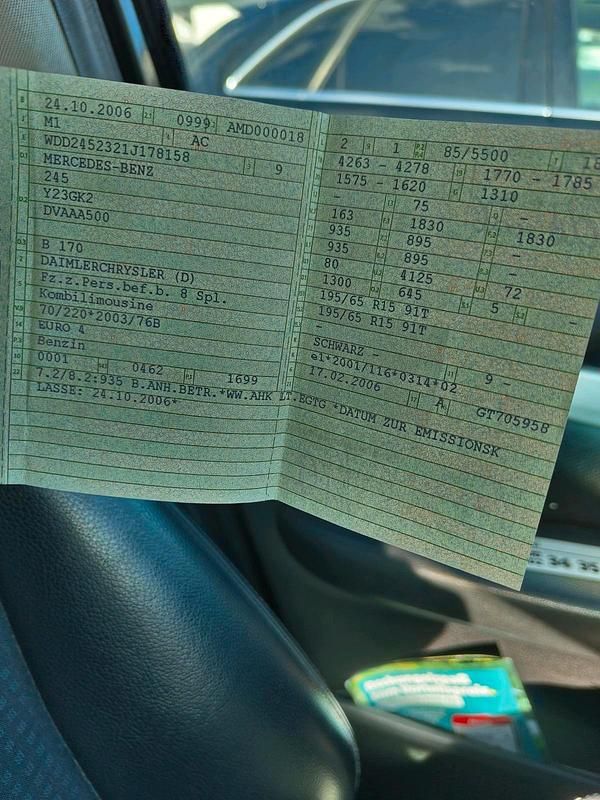 24.10.2006 0999 AMD000018
M1 AC
WDD2452321J178158 9
MERCEDES-BENZ
245
Y23GK2
DVAAA500
B 170
DAIMLERCHRYSLER (D)
Fz.z.Pers.bef.b. 8 Spl.
Kombilimousine
70/220*2003/76B
EURO 4
Benzin
0001 0462 1699
7.2/8.2:935 B.ANH.BETR.*WW.AHK LT.EGTG *DATUM ZUR EMISSIONSK
LASSE: 24.10.2006*
2 1 85/5500
4263 - 4278 1770 - 1785
1575 - 1620 1310
- 75 -
163 1830 1830
935 895 -
935 895 -
80 4125 72
1300 645 5 -
195/65 R15 91T
195/65 R15 91T
-
SCHWARZ - 9 -
e1*2001/116*0314*02
17.02.2006 A GT705958
34 35